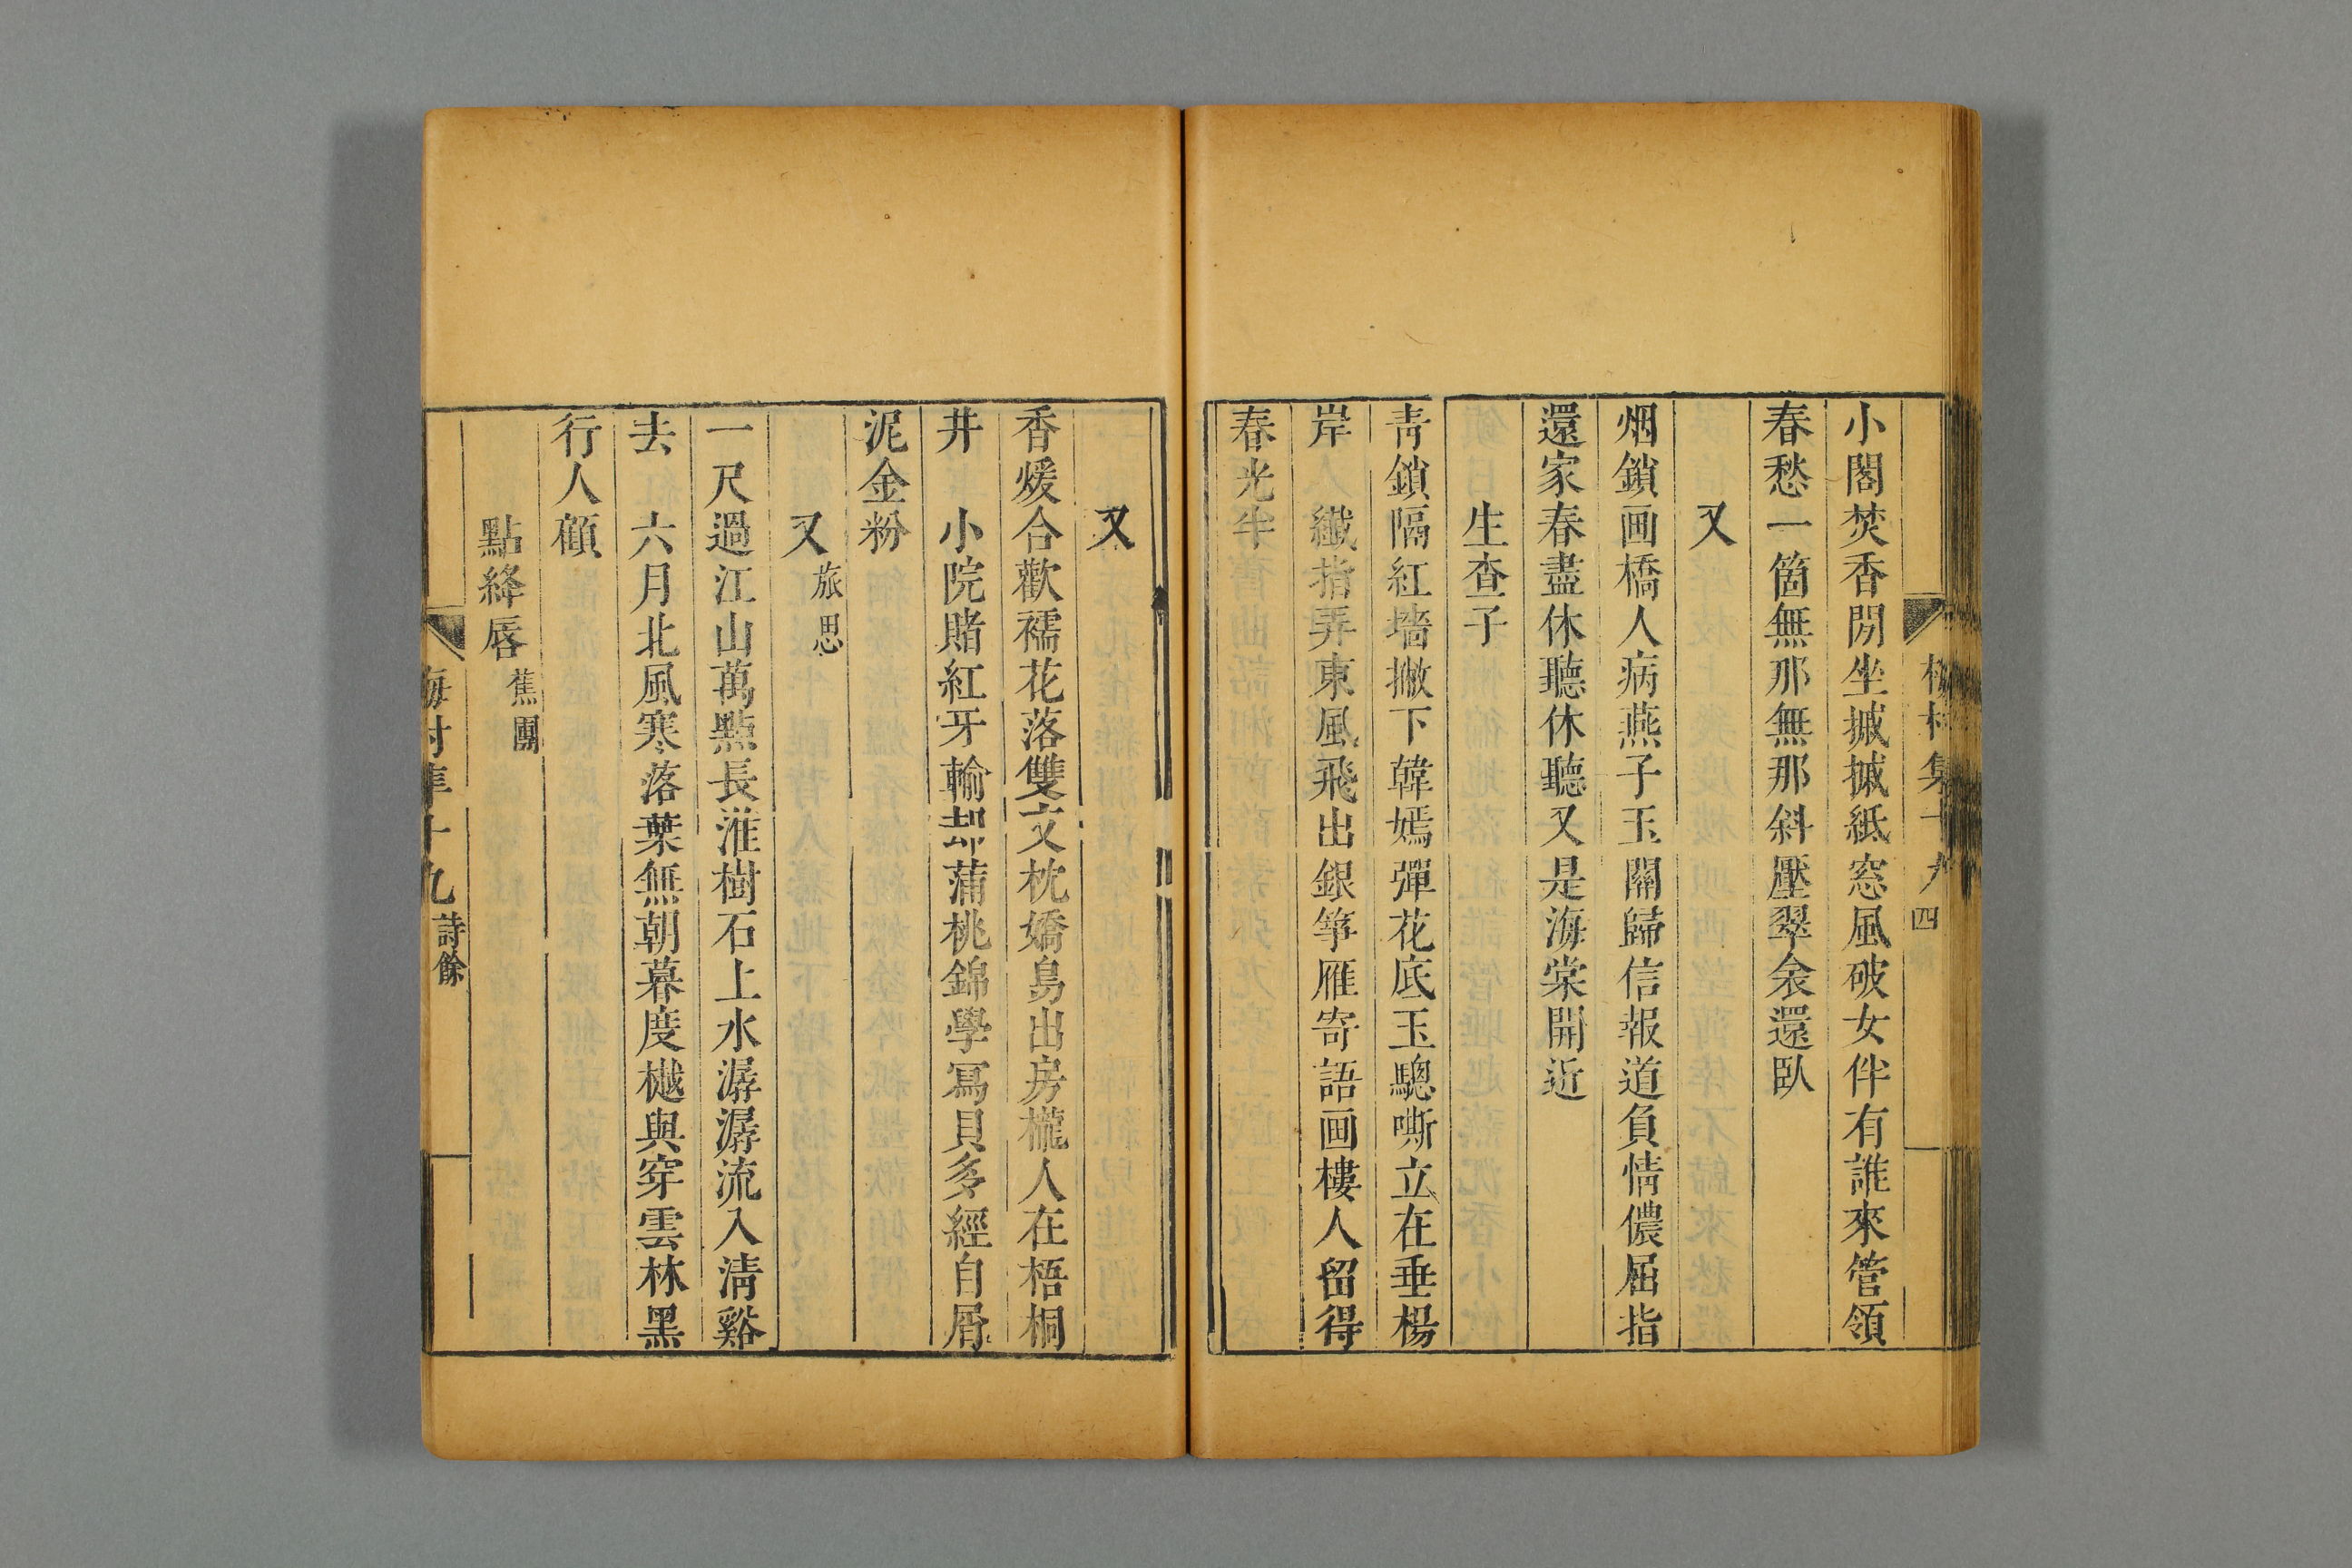 小閣焚香閒坐摵摵紙窓風破女伴有誰來管領
春愁一箇無那無那斜壓翠衾還臥
又
烟鎖画橋人病燕子玉關歸信報道負情儂屈指
還家春盡休聽休聽又是海棠開近
生查子
青鎖隔紅墻撇下韓嫣彈花底玉驄嘶立在垂楊
岸　纖指弄東風飛出銀箏雁寄語画樓人留得
春光半
又
香煖合歡襦花落雙文枕嬌鳥出房櫳人在梧桐
井　小院賭紅牙輸却蒲桃錦學冩貝多經自屑
泥金粉
又旅思
一尺過江山萬點長淮樹石上水潺潺流入清谿
去　六月北風寒落葉無朝暮度樾與穿雲林黑
行人顧
點絳唇蕉團
村集十九 四
十九 詩餘